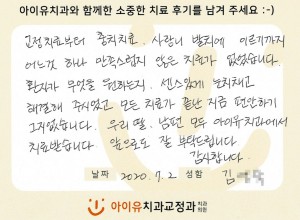 아이유치과와 함께한 소중한 치료 후기를 남겨 주세요 :-)
교정치료부터 충치치료, 사랑니 발치에 이르기까지
어느것 하나 만족스럽지 않은 치료가 없었습니다.
환자가 무엇을 원하는지, 센스있게 눈치채고
해결해 주시었고 모든 치료가 끝난 지금 편안하기
그지없습니다. 우리 딸, 남편 모두 아이유치과에서
치료받습니다. 앞으로도 잘 부탁드립니다
감사합니다.
날짜 2020. 7. 2 성함 김
아이유치과교정과 치과의원